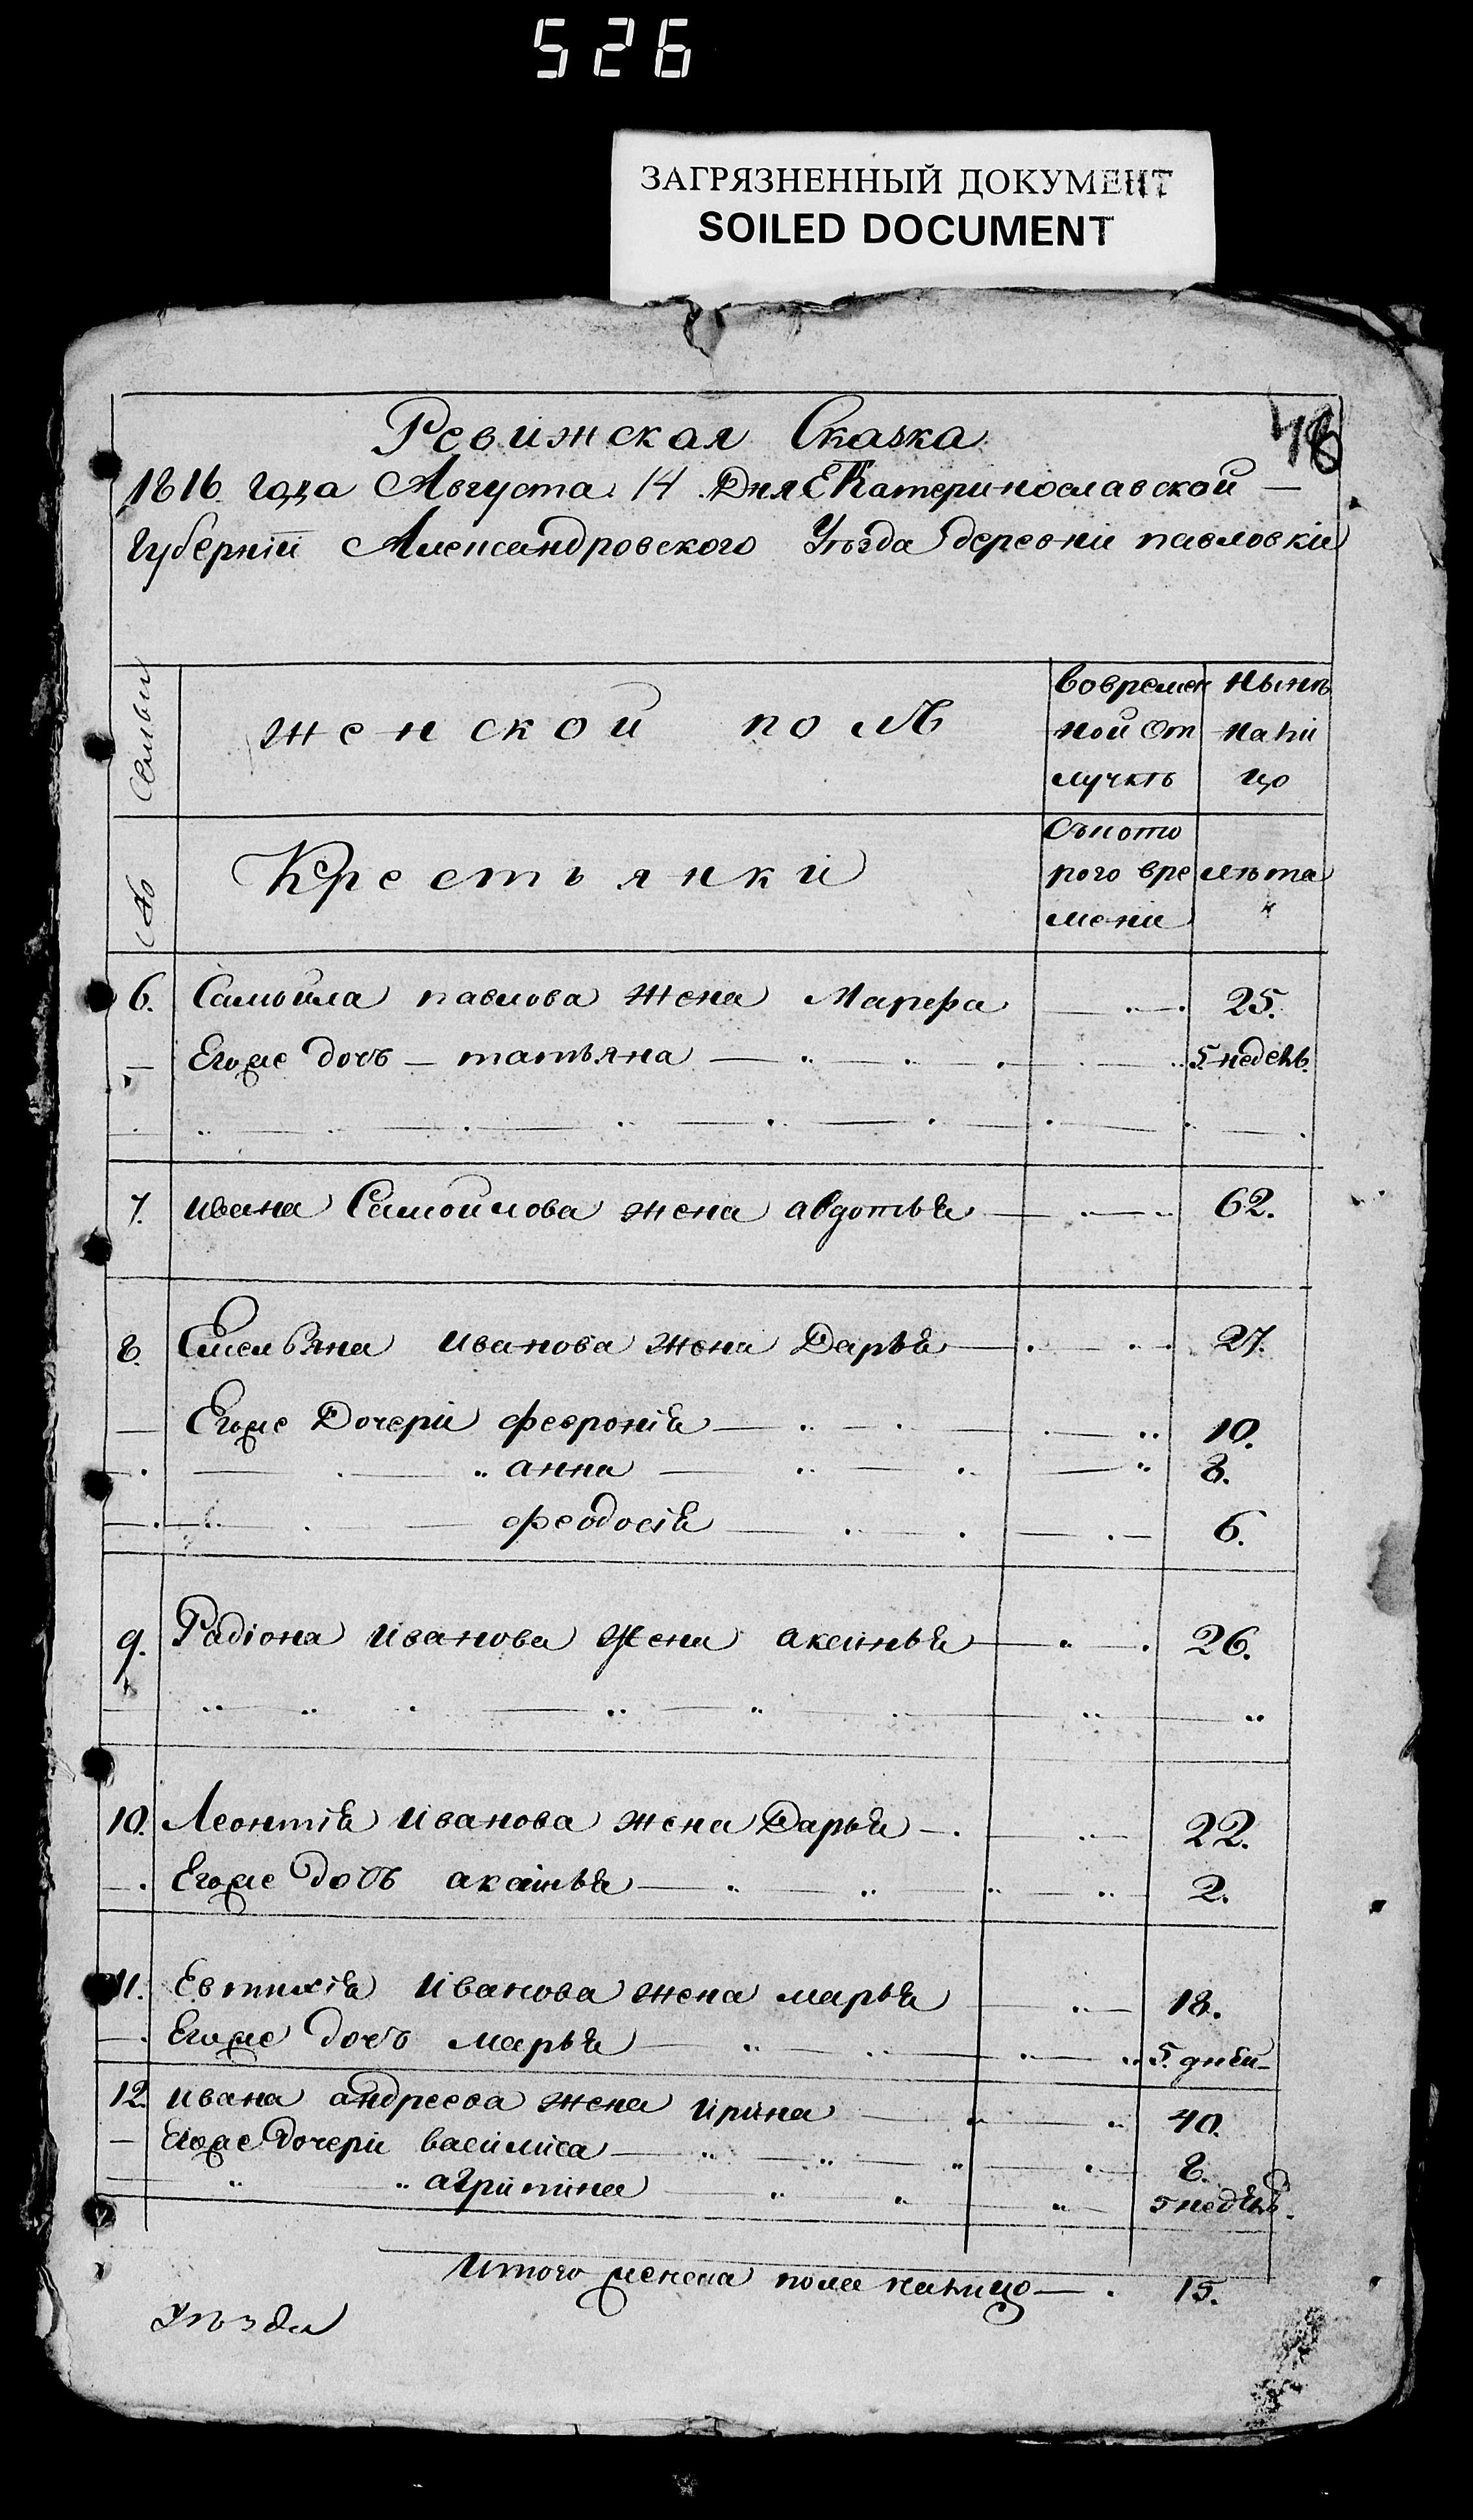 526
ЗАГРЯЗНЕННЫЙ ДОКУМЕНТ
SOILED DOCUMENT
48
Ревижская Сказка
1816 года Августа 14 Дня Екатеринославской —
губернии Александровского Уѣзда деревни павловки
Семьи женской полъ вовремен Нынѣ
ной От Нали
лучкѣ цо
№ Крестьянки Съкото
рого вре лѣта
мени
6. Самойла павлова жена Марфа 25.
Егоже дочь — татьяна 5 недель.
7. ивана Самойлова жена авдотья 62.
8. Емельяна Иванова жена Дарья 27.
Егоже Дочери феврония 10.
анна 8.
феодосия 6.
9. Радіона Иванова Жена аксинья 26.
10. Леонтия Иванова жена Дарья 22.
Егоже дочь аксинья 2.
11. Евтихія Иванова жена марья 18.
Егоже дочь марья 5. дней
12. ивана андреева жена ирина 40.
Егоже Дочери василиса 8.
агрипина 5 недѣль.
Итого женска пола налицо — 15.
Уѣзда